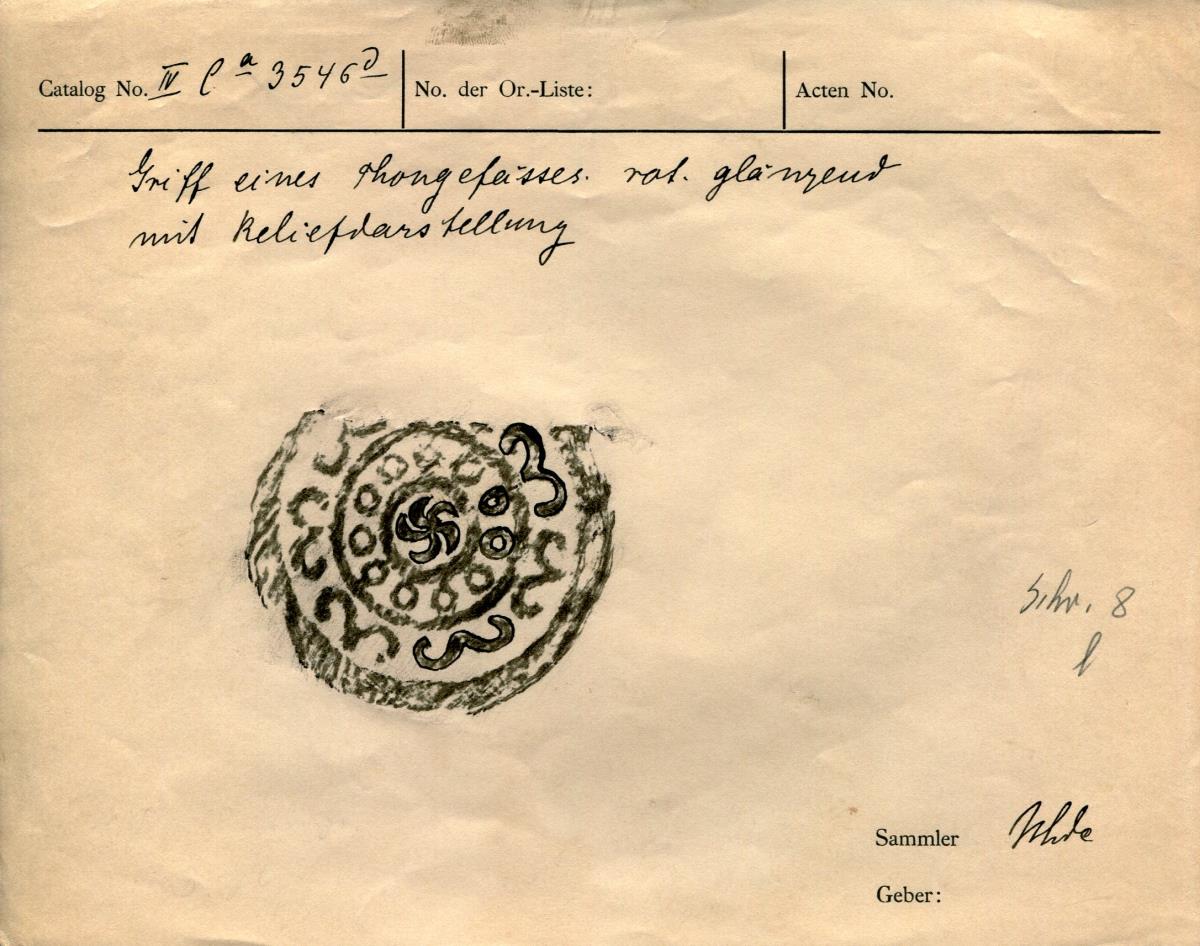 Catalog No. IV Ca 3546d
No. der Or.-Liste:
Acten No.
Griff eines Thongefässes. rot. glänzend
mit Reliefdarstellung
Schr. 8
l
Sammler Uhde
Geber: